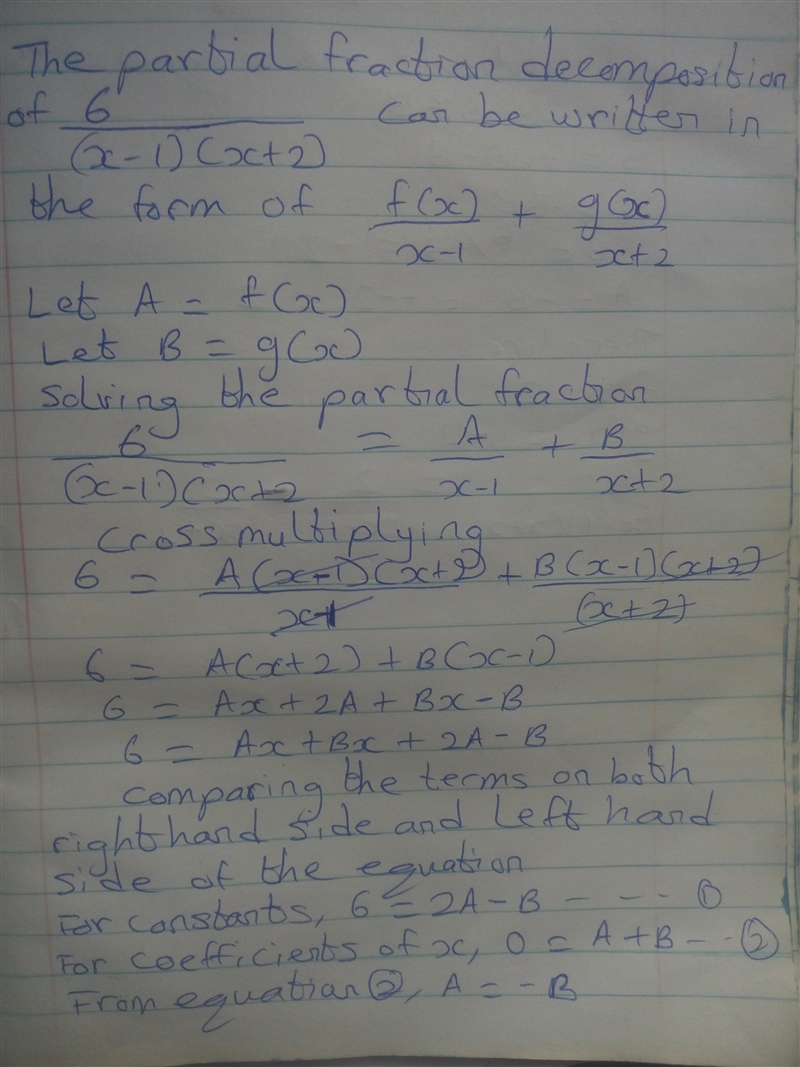 The partial fraction decomposition
of 6/((x-1)(x+2)) can be written in
the form of f(x)/(x-1) + g(x)/(x+2)
Let A = f(x)
Let B = g(x)
Solving the partial fraction
6/((x-1)(x+2) = A/(x-1) + B/(x+2)
Cross multiplying
6 = A(x-1)(x+2)/(x-1) + B(x-1)(x+2)/(x+2)
6 = A(x+2) + B(x-1)
6 = Ax + 2A + Bx - B
6 = Ax + Bx + 2A - B
comparing the terms on both
right hand side and Left hand
side of the equation
For constants, 6 = 2A - B - --- ①
For coefficients of x, 0 = A + B --- ②
From equation ②, A = -B